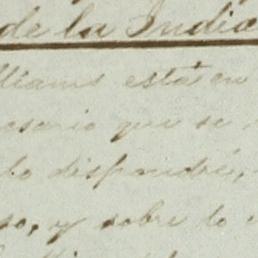 de la India
lliams está en
cesario que se
do dispondré,
so, y sobre lo